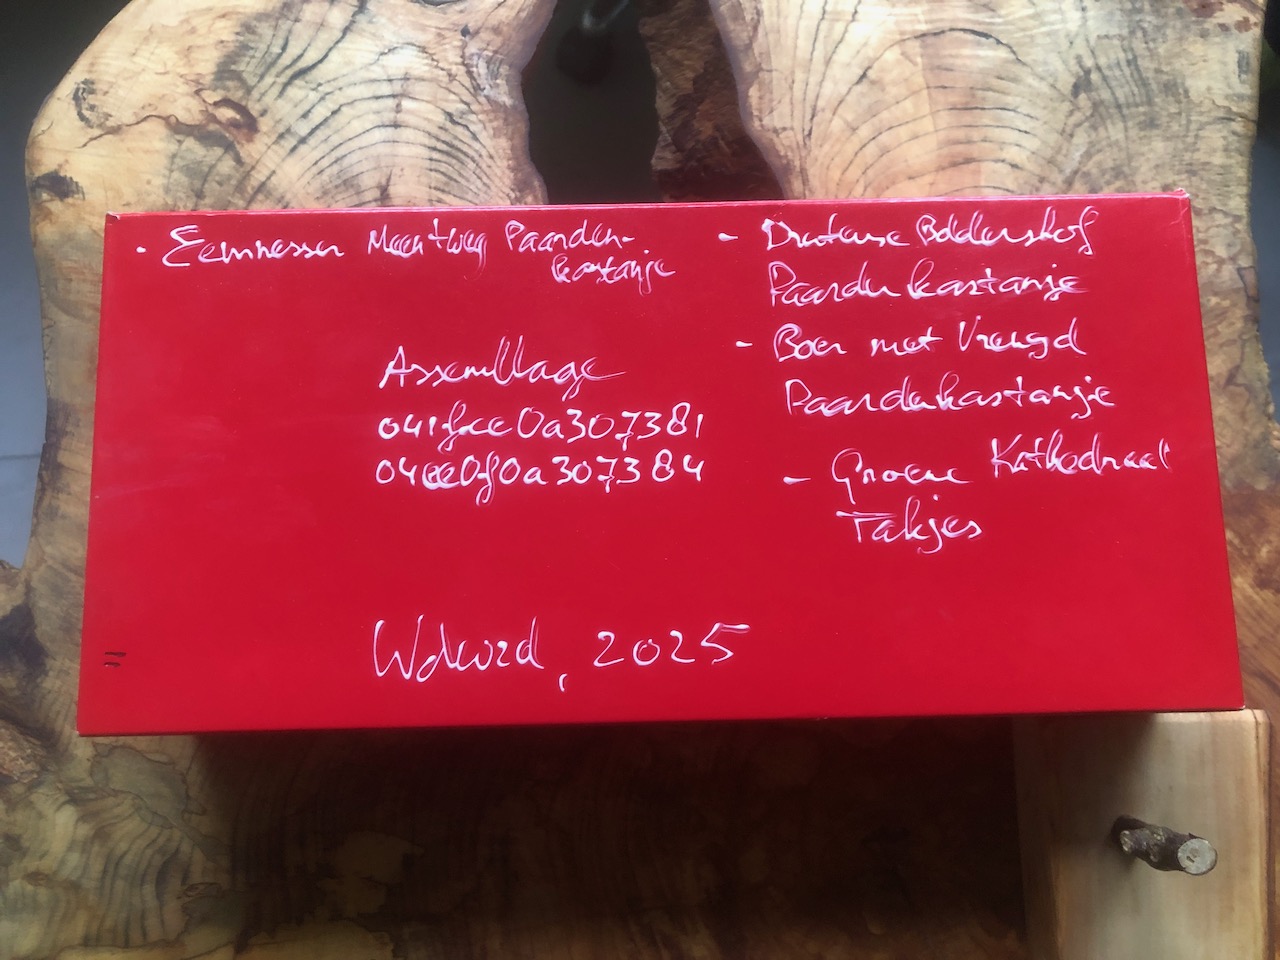 - Eemnesser Meentweg Paarden-
kastanje
Assemblage
041fce0a307381
04ee0f0a307384
2025
- Drutense Boldershof
Paardenkastanje
- Boer met Vreugd
Paardenkastanje
- Groene Kathedraal
Takjes